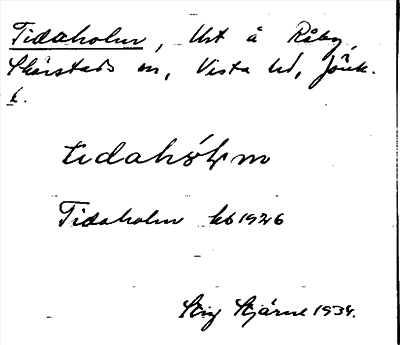 Tidaholm, Urt å Råby,
Skärstads sn, Vista hd, Jönk.
l.
tidahól̨m
Tidaholm kb 1926
Stig Stjärne 1934.